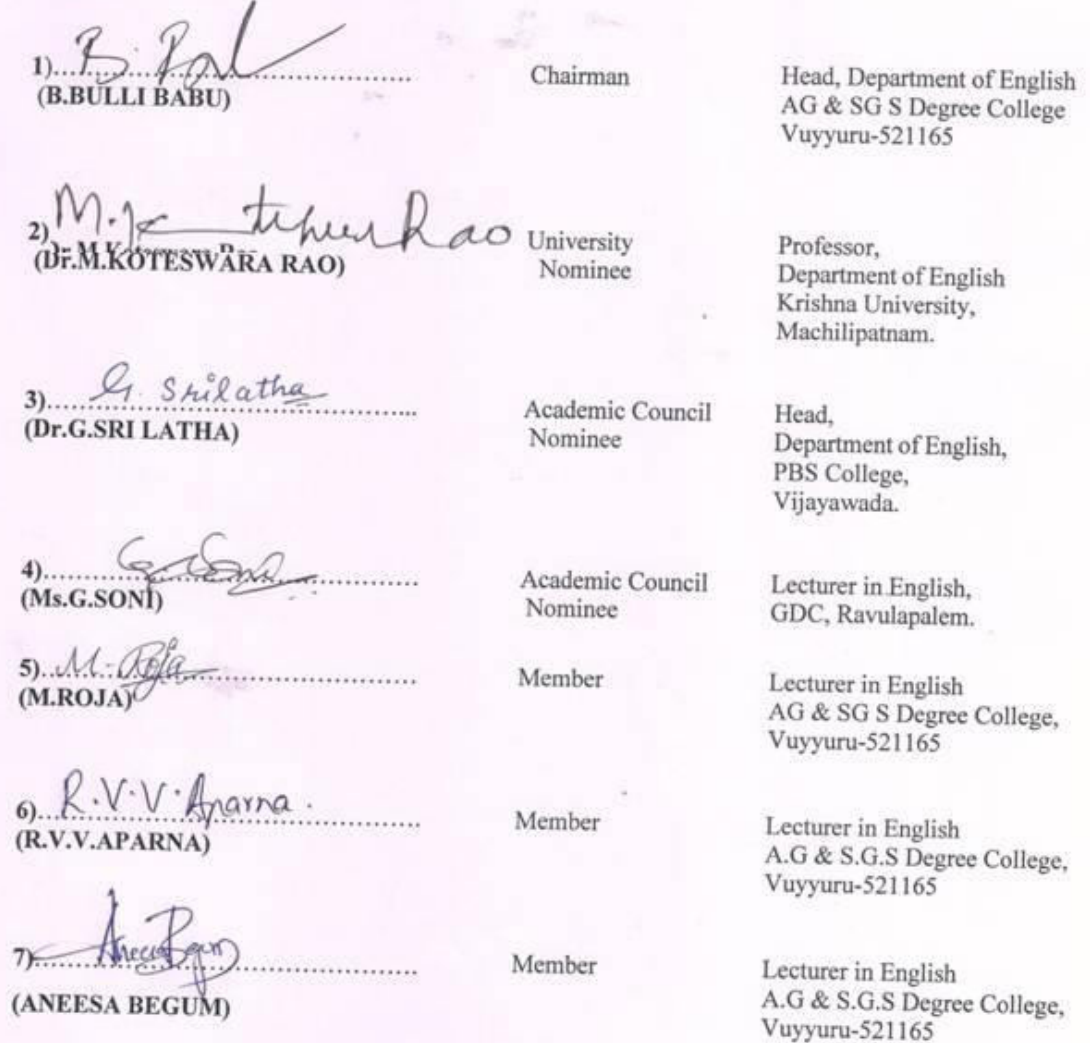 1) B. 
(B.BULLI BABU)
Chairman
Head, Department of English
AG & SG S Degree College
Vuyyuru-521165
2) M. Rao
(Dr.M.KOTESWARA RAO)
University
Nominee
Professor,
Department of English
Krishna University,
Machilipatnam.
3) G. Srilatha
(Dr.G.SRI LATHA)
Academic Council
Nominee
Head,
Department of English,
PBS College,
Vijayawada.
4) G Soni
(Ms.G.SONI)
Academic Council
Nominee
Lecturer in English,
GDC, Ravulapalem.
5) M. Roja
(M.ROJA)
Member
Lecturer in English
AG & SG S Degree College,
Vuyyuru-521165
6) R.V.V. Aparna.
(R.V.V.APARNA)
Member
Lecturer in English
A.G & S.G.S Degree College,
Vuyyuru-521165
7) Aneesa Begum
(ANEESA BEGUM)
Member
Lecturer in English
A.G & S.G.S Degree College,
Vuyyuru-521165